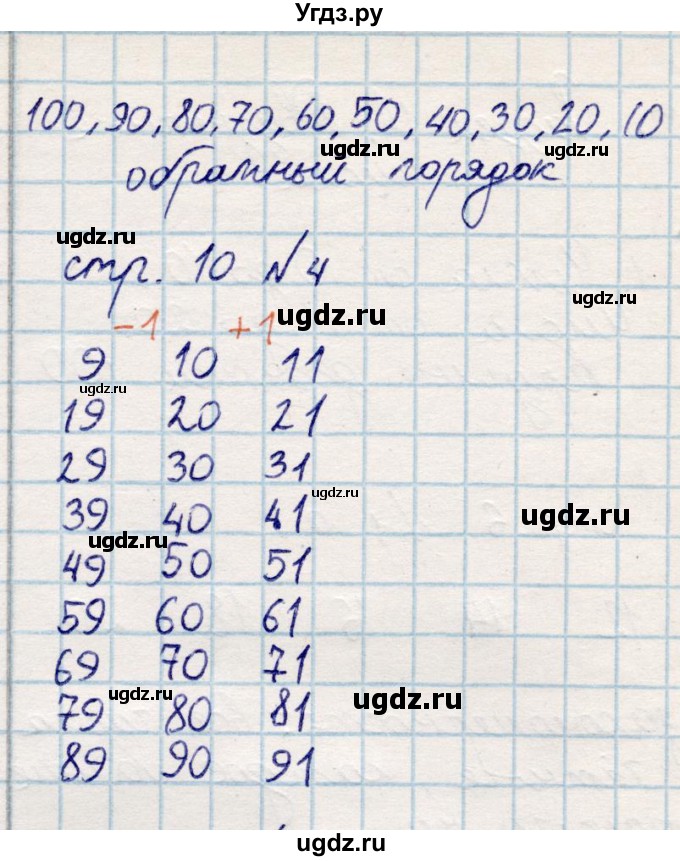 Угдз.ру
100, 90, 80, 70, 60, 50, 40, 30, 20, 10
ugdz.ru
ugdz.ru
обратный порядок
ugdz.ru
стр. 10 №4
ugdz.ru
ugdz.ru
-1 +1
9 10 11
ugdz.ru
19 20 21
29 30 31
ugdz.ru
39 40 41
ugdz.ru
ugdz.ru
49 50 51
59 60 61
69 70 71
ugdz.ru
ugdz.ru
79 80 81
89 90 91
ugdz.ru